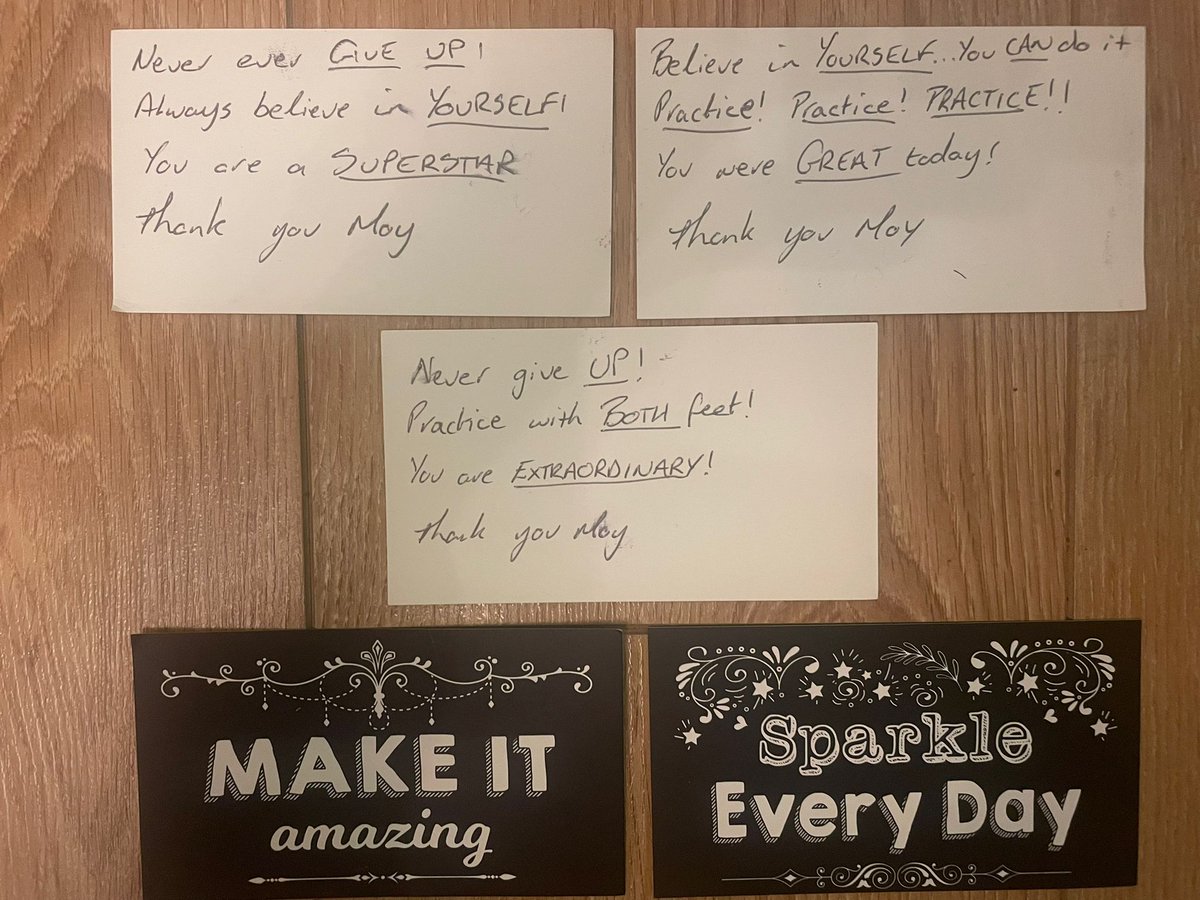 Never ever GIVE UP!
Always believe in YOURSELF!
You are a SUPERSTAR
Thank you May
Believe in YOURSELF...You CAN do it
Practice! Practice! PRACTICE!!
You were GREAT today!
Thank you May
Never give UP!
Practice with BOTH feet!
You are EXTRAORDINARY!
Thank you May
MAKE IT
amazing
Sparkle
Every Day